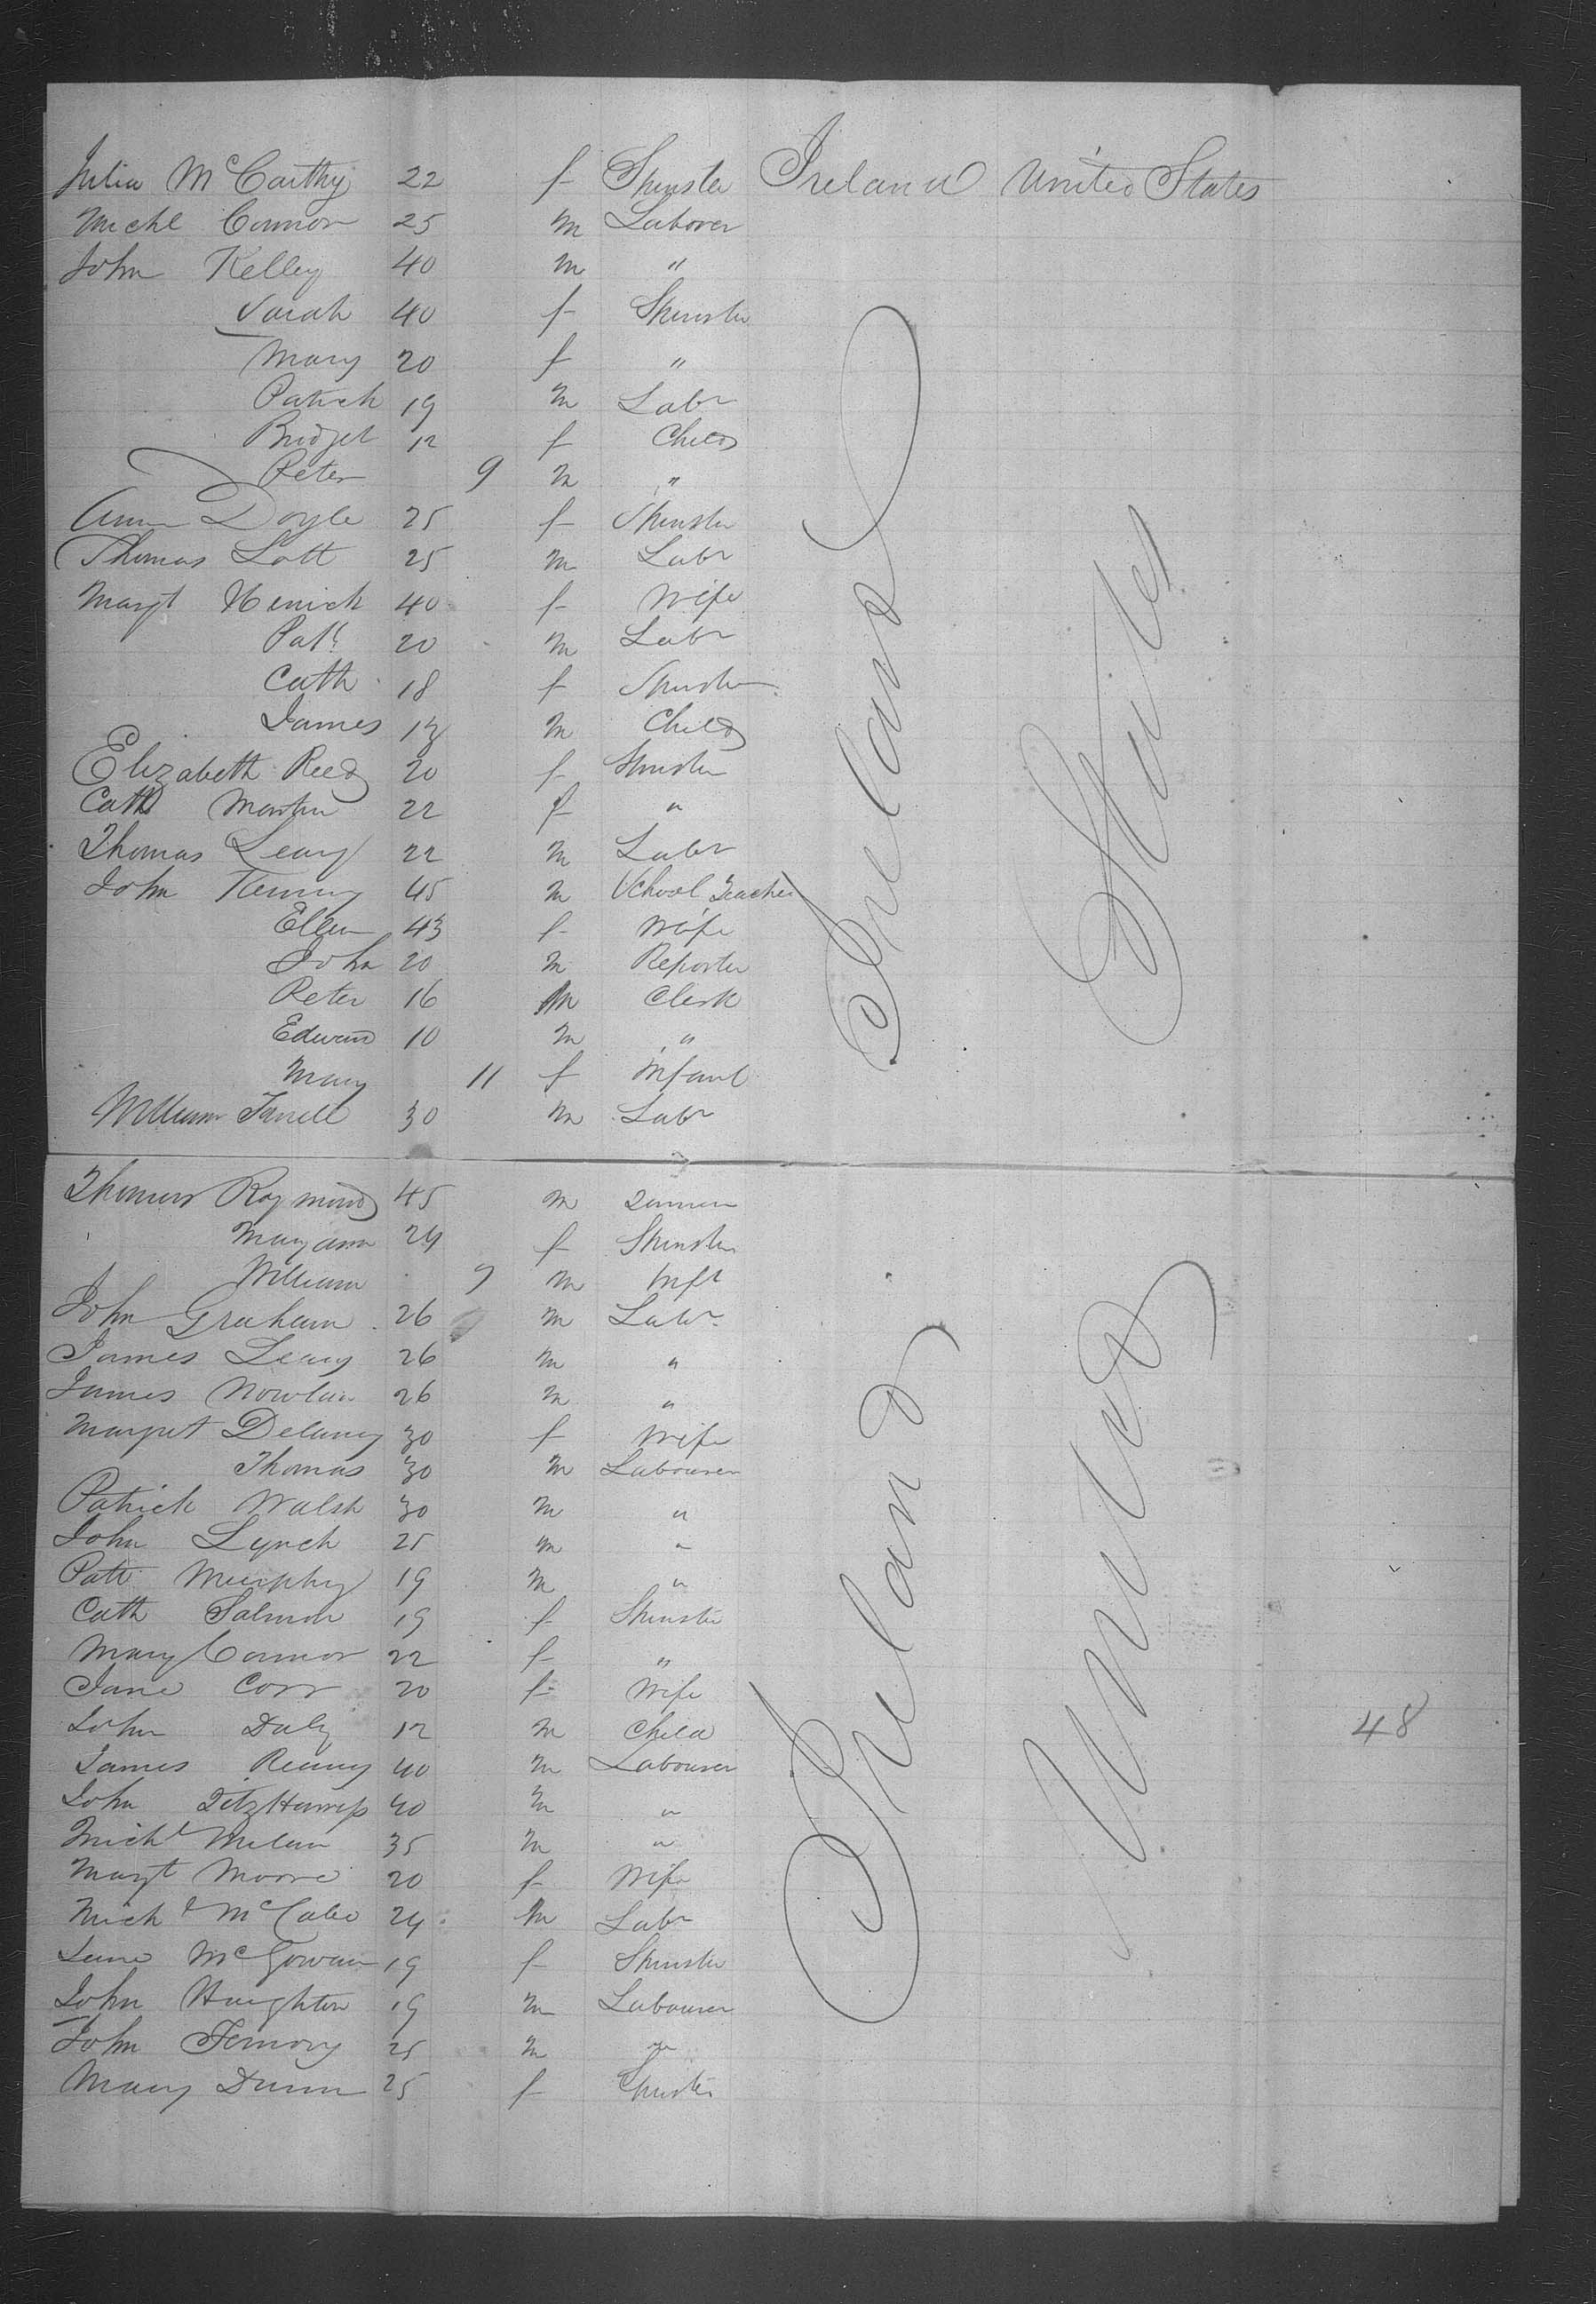 Julia McCarthy 22 f Spinster Ireland United States
Michl Connor 25 m Laborer
John Kelley 40 m "
Sarah 40 f Spinster
Mary 20 f "
Patrick 19 m Labr
Bridget 12 f Child
Peter 9 m "
Ann Doyle 25 f Spinster
Thomas Lott 25 m Labr
Margt 40 f Wife
Patk 20 m Labr
Cath 18 f Spinster
James 13 m Child
Elizabeth Reed 20 f Spinster
Cath Martin 22 f "
Thomas Leary 22 m Labr
John 45 m School Teacher
Ellen 43 f Wife
John 20 m Reporter
Peter 16 m Clerk
Edward 10 m "
Mary 11 f Infant
William Farrell 30 m Labr
Ireland
States
Thomas Raymond 45 m
Maryann 24 f Spinster
William 7 m Inft
John Graham 26 m Labr
James Leary 26 m "
James Nowlan 26 m "
Margret Delaney 30 f Wife
Thomas 30 m Labourer
Patrick Walsh 30 m "
John Lynch 25 m "
Patk Murphy 19 m "
Cath Salmon 19 f Spinster
Mary Connor 22 f "
Jane Corr 20 f Wife
John Daly 12 m Child
James 40 m Labourer
John FitzHarris 40 m "
Michl 35 m "
Margt Moore 20 f Wife
Michl McCabe 24 m Labr
Jane McGowan 19 f Spinster
John Haughton 19 m Labourer
John 25 m "
Mary Dunn 25 f Spinster
Ireland
United
48